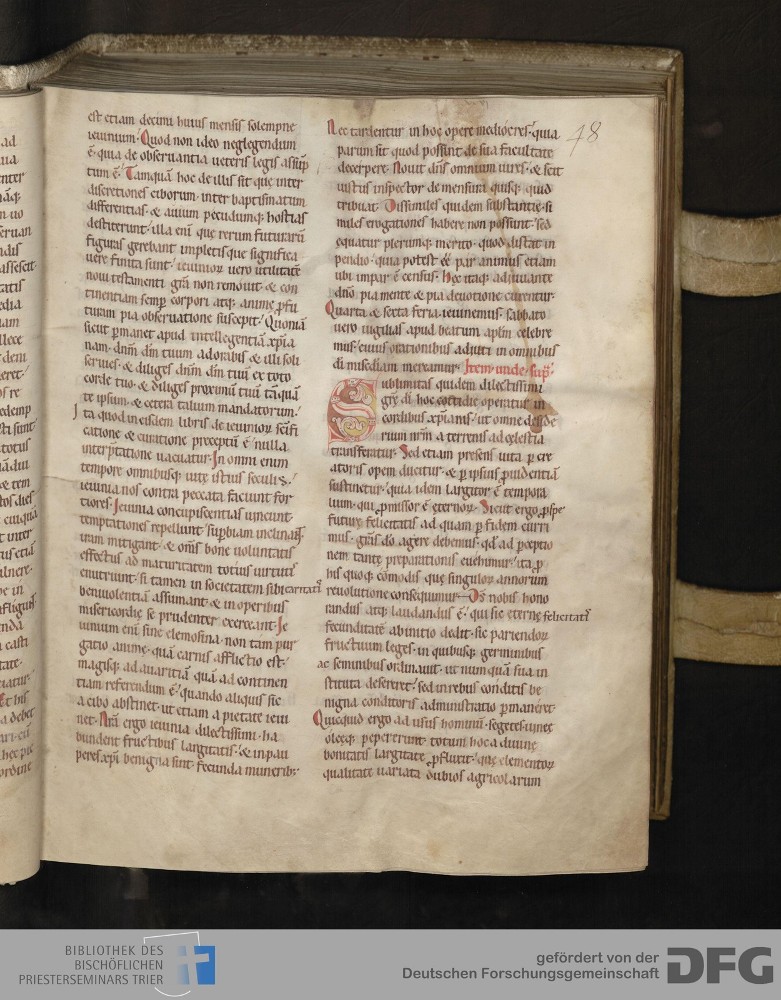 est etiam decimi huius mensis solempne
ieiunium. Quod non ideo neglegendum
ē. quia de obseruantia ueteris legis assūp
tum ē. Tamquā hoc de illis sit que inter
discretiones ciborum. inter baptismatum
differentias. & auium pecudumq; hostias
destiterunt. illa eni que rerum futurarū
figuras gerebant impletisque significa
uere finita sunt. ieiunioꝝ uero utilitatē
noui testamenti grā non remouit. & con
tinentiam semp corpori atq; anime ꝓfu
turam pia obseruatione suscepit. Quoniā
sicut ꝑmanet apud intellegentiā xp̄ia
nam. dn̄m dm̄ tuum adorabis & illi soli
seruies. & diliges dn̄m dm̄ tuū ex toto
corde tuo. & diliges proximū tuū tāquā
te ipsum. & cetera talium mandatorum.
Ita quod in eisdem libris de ieiunioꝝ sc̄ifi
catione & curatione preceptū ē. nulla
interp̄tatione uacuatur. In omni enim
tempore omnibusq; uitę istius seculis.
ieiunia nos contra peccata faciunt for
tiores. Ieiunia concupiscentias uincunt.
temptationes repellunt. suꝑbiam inclinaņt
iram mitigant. & om̄s bone uoluntatis
effectus ad maturitatem totius uirtutis
enutriunt. si tamen in societatem sibi caritatē
beniuolentiā assumant & in operibus
misericordię se prudenter exerceant. Ie
iunium eni sine elemosina. non tam pur
gatio anime. quā carnis afflictio est.
magisq; ad auaritiā quā ad continen
tiam referendum ē. quando aliquis sic
a cibo abstinet. ut etiam a pietate ieiu
net. Nr̄a ergo ieiunia dilectissimi. ha
bundent fructibus largitatis. & in pau
peres xp̄i benigna sint. fecunda munerib;
48
Nec tardentur in hoc opere mediocres. quia
parum sit quod possint de sua facultate
decerpere. Nouit dn̄s omnium uires. & scit
iustus inspector de mensura quisq; quid
tribuat. Dissimiles quidem substantie. si
miles erogationes habere non possunt. sed
equatur plerumq; merito. quod distat in
pendio. quia potest eē par animus etiam
ubi impar ē census. Hęc itaq; adiuuante
dn̄o pia mente & pia deuotione curentur.
Quarta & sexta feria ieiunemus. sabbato
uero uigilias apud beatum aplm̄ celebre
mus. cuius orationibus adiuti in omnibus
di mis̄diam mereamur. Item unde sup̄.
Sublimitas quidem dilectissimi
grę di hoc cottidie operatur in
cordibus xp̄ianis. ut omne deside
rium nr̄m a terrenis ad cęlestia
transferatur. Sed etiam presens uita ꝑ cre
atoris opem ducitur. & ꝑ ipsius ꝓuidentiā
sustinetur. quia idem largitor ē tempora
lium. qui ꝓmissor ē ęternoꝝ. Sicut ergo ꝓ spe
future felicitatis ad quam ꝑ fidem curri
mus. grās dō agere debemus. qd ad ꝑceptio
nem tantę preparationis euehimur. ita ꝓ
his quoq; cōmodis que singuloꝝ annorum
reuolutione consequimur. Ds̄ nobis hono
randus atq; laudandus ē. qui sic eterne felicitatis
fecunditatē ab initio dedit. sic pariendoꝝ
fructuum leges. in quibusq; germinibus
ac seminibus ordinauit. ut numquā sua in
stituta desereret. sed in rebus conditis be
nigna conditoris administratio ꝑmaneret.
Quicquid ergo ad usus hominū. segetes. uineę
oleęq; pepererunt. totum hoc a diuinę
bonitatis largitate ꝓfluxit. que elementoꝝ
qualitate uariata dubios agricolarum
BIBLIOTHEK DES
BISCHÖFLICHEN
PRIESTERSEMINARS TRIER
gefördert von der
Deutschen Forschungsgemeinschaft
DFG